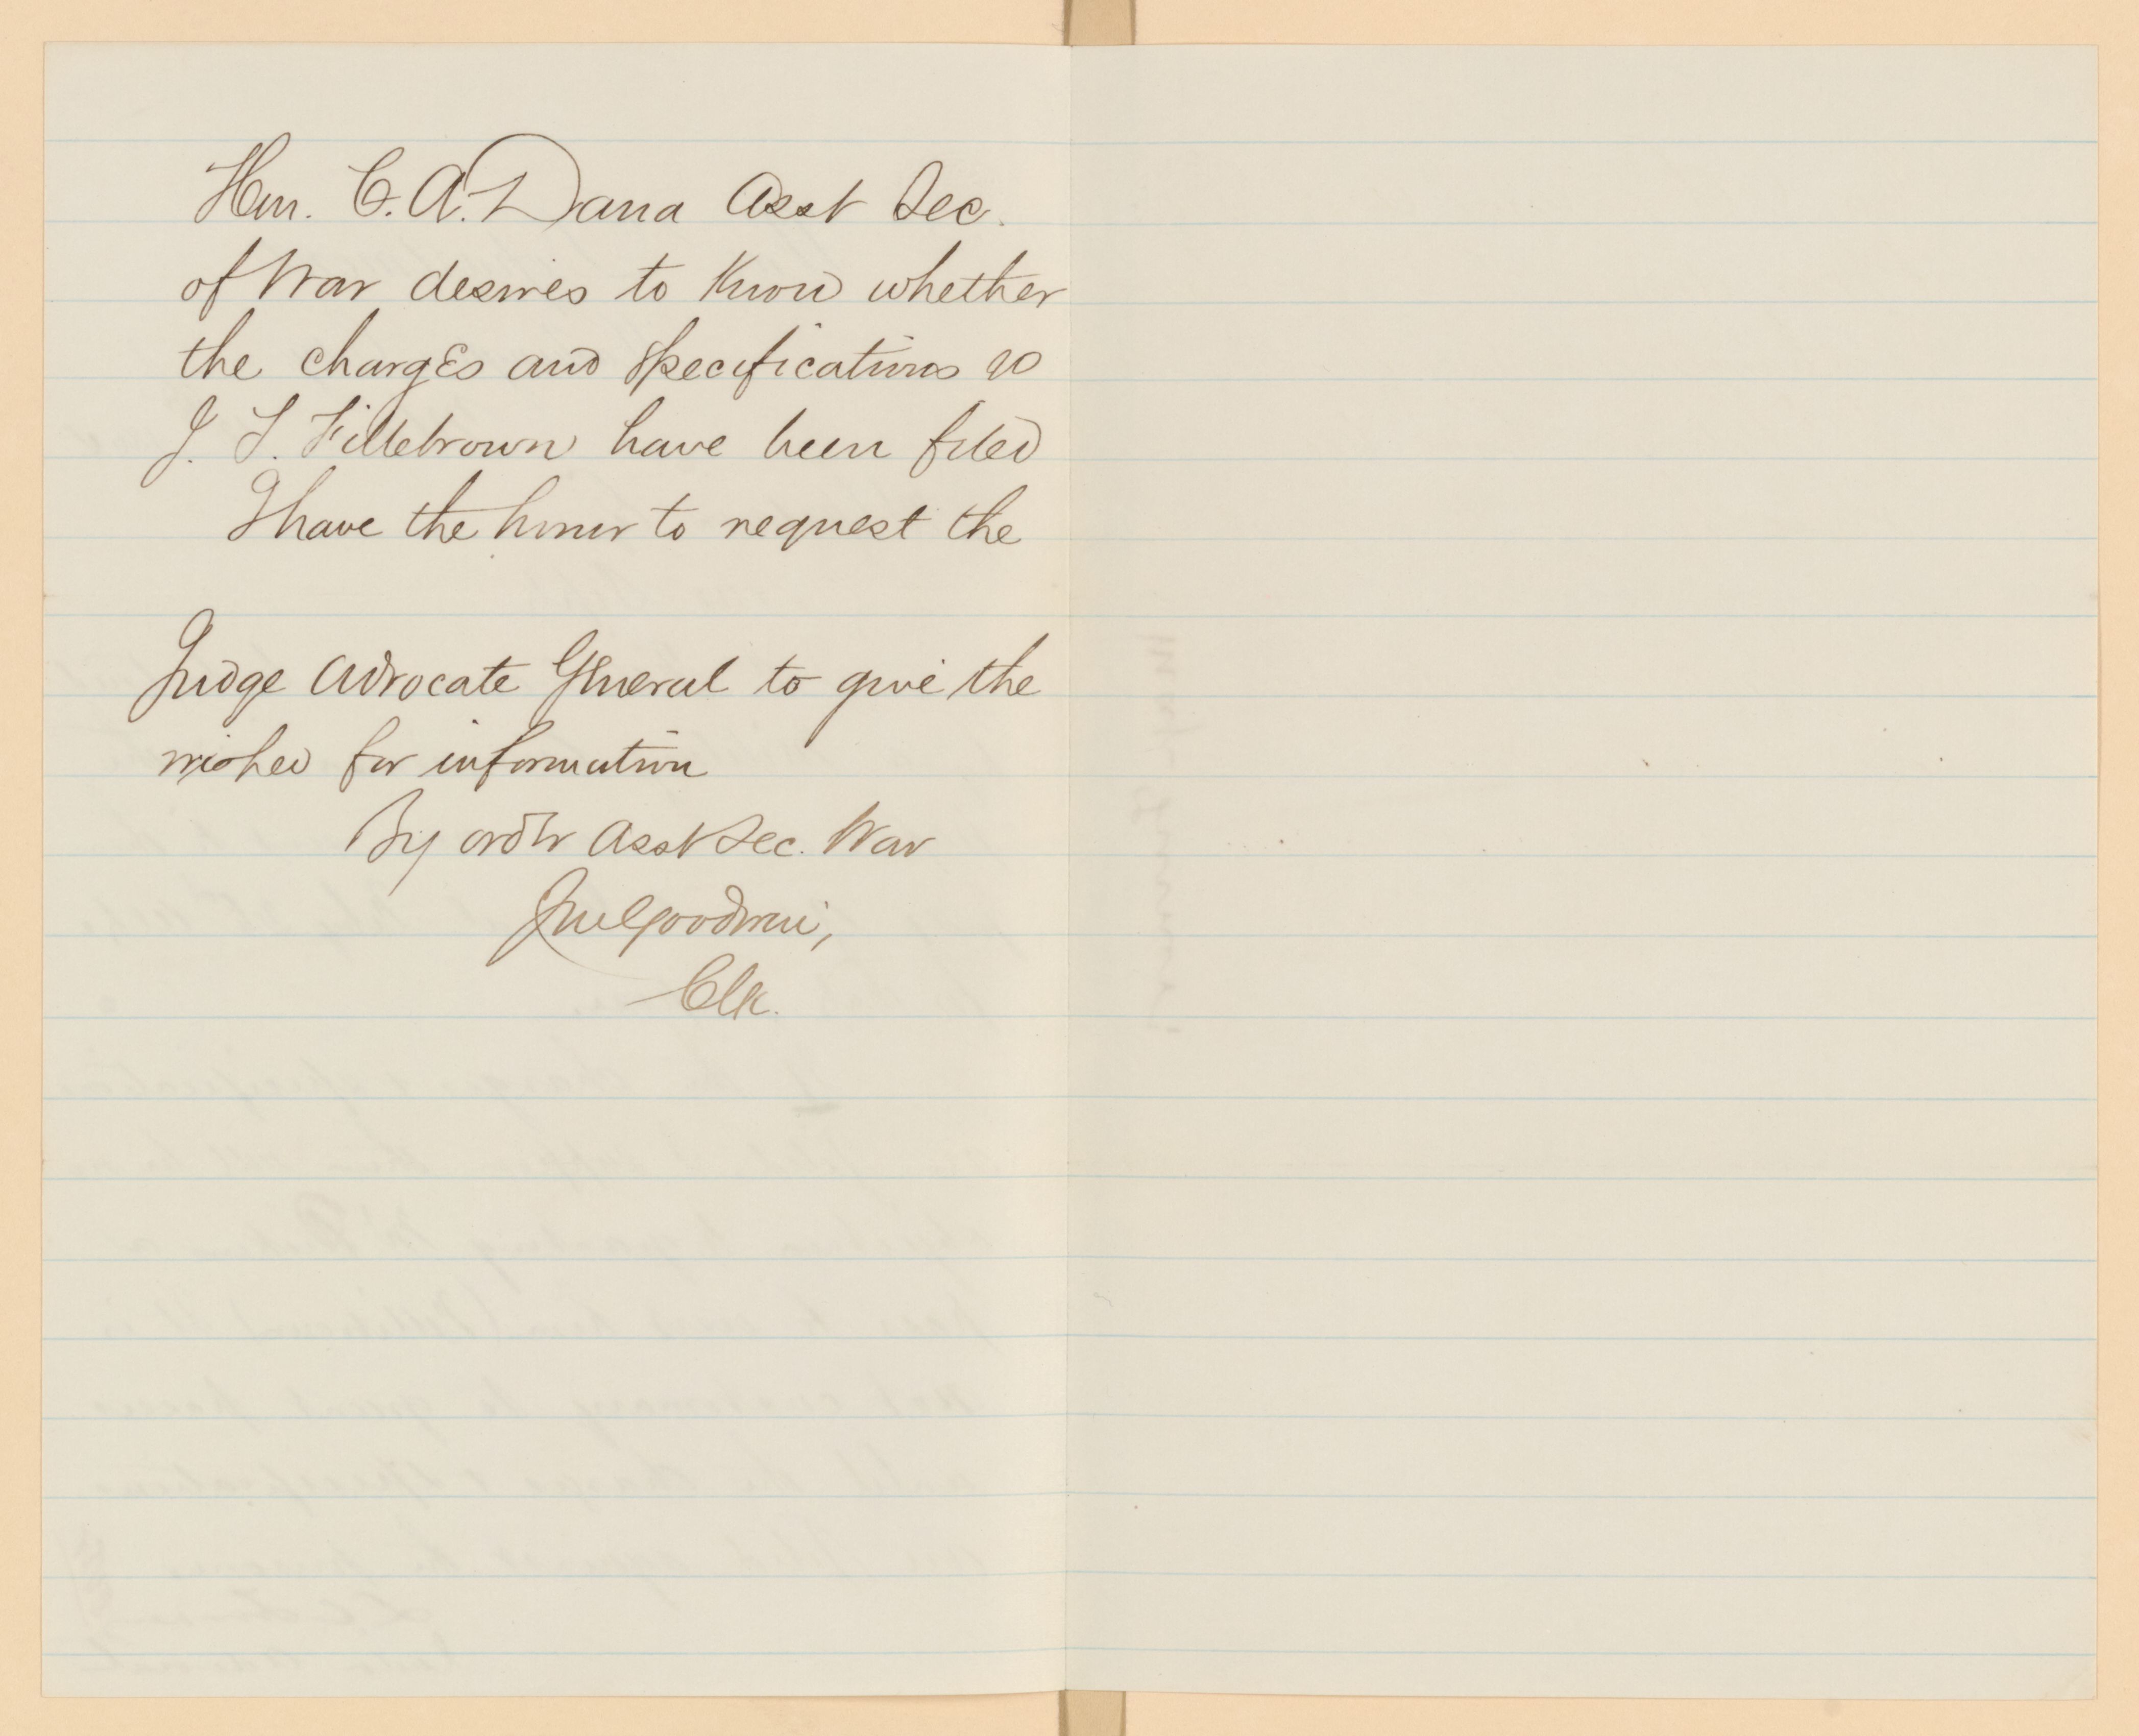 Hon. C. A. Dana Asst Sec.
of War desires to know whether
the charges and specifications vs
J. S. Fillebrown have been filed
I have the honor to request the
Judge Advocate General to give the
wished for information
By order Asst Sec. War
Goodwin,
Clk.